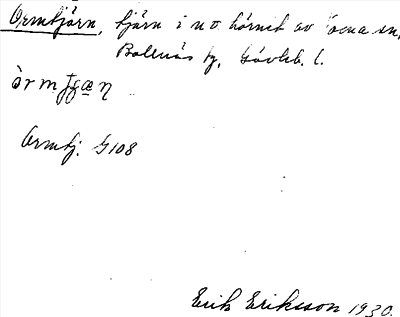 Ormtjärn, tjärn i no hörnet av socknen,
Bollnäs sn, Gävleb. l.
òrmʃæ̨η
Ormtj. G108
Erik Eriksson 1930.